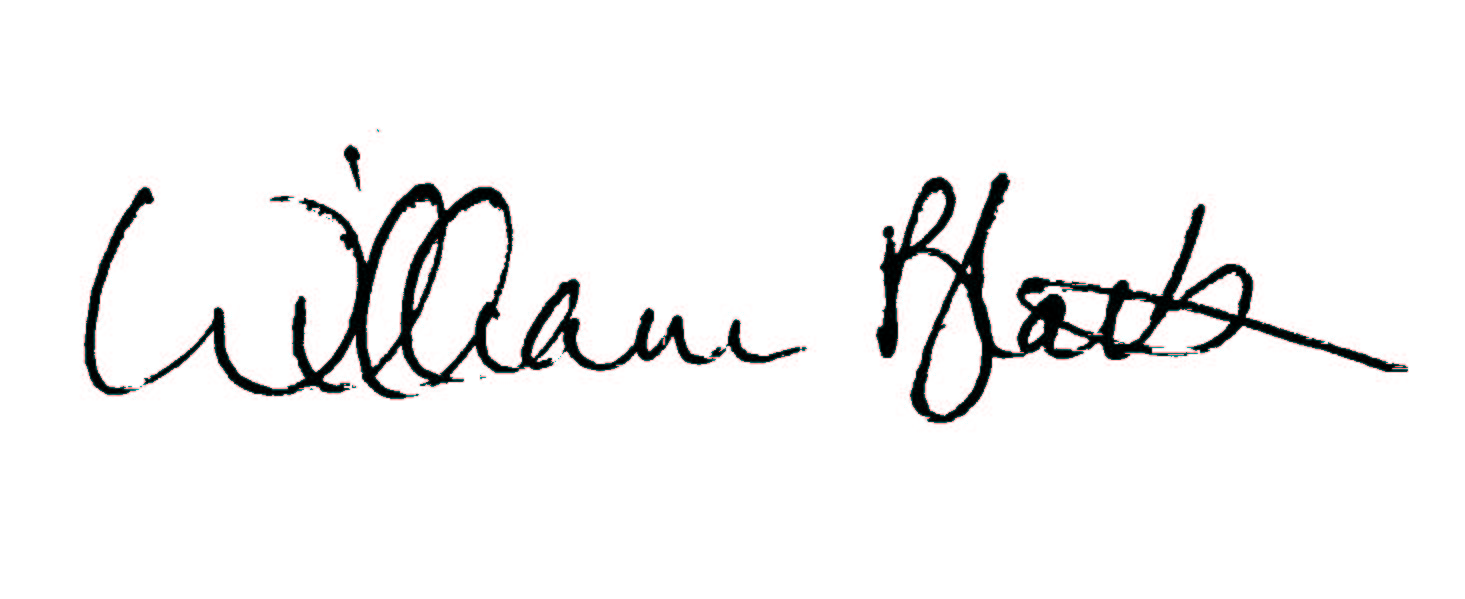 William Black